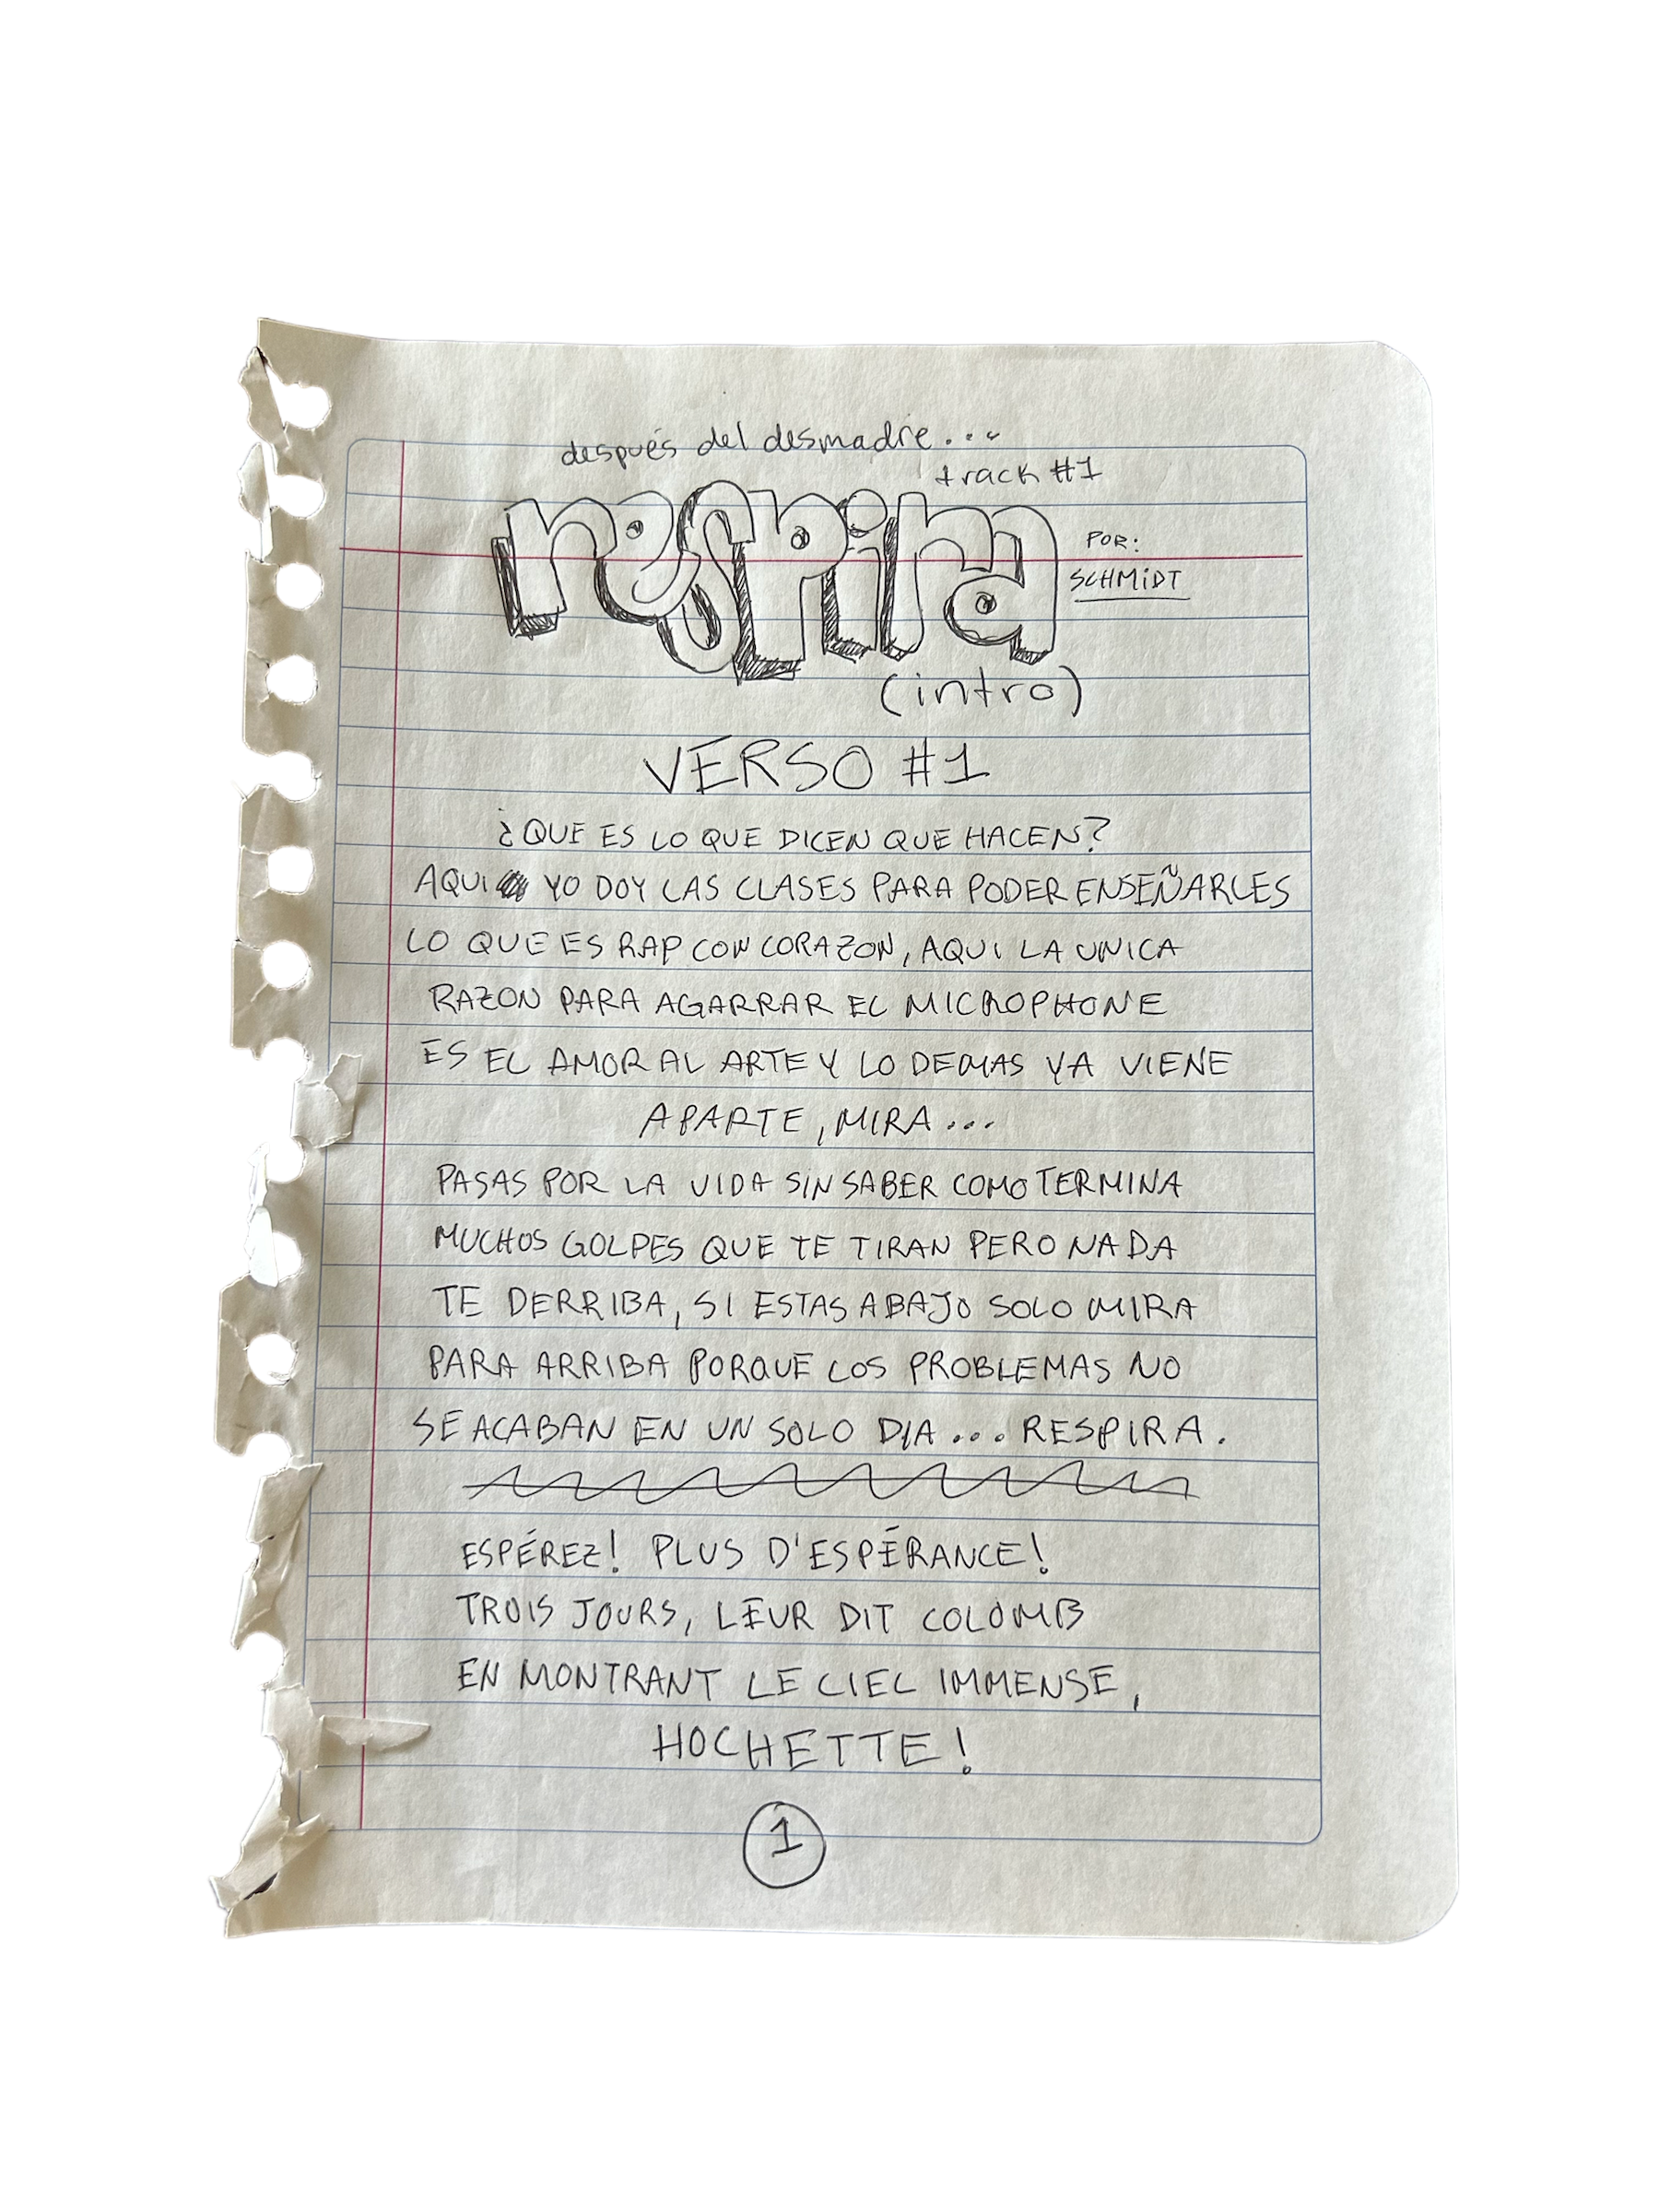 después del desmadre...
track #1
respira
POR:
SCHMIDT
(intro)
VERSO #1
¿QUE ES LO QUE DICEN QUE HACEN?
AQUI YO DOY LAS CLASES PARA PODER ENSEÑARLES
LO QUE ES RAP CON CORAZON, AQUI LA UNICA
RAZON PARA AGARRAR EL MICROPHONE
ES EL AMOR AL ARTE Y LO DEMAS YA VIENE
APARTE, MIRA...
PASAS POR LA VIDA SIN SABER COMO TERMINA
MUCHOS GOLPES QUE TE TIRAN PERO NADA
TE DERRIBA, SI ESTAS ABAJO SOLO MIRA
PARA ARRIBA PORQUE LOS PROBLEMAS NO
SE ACABAN EN UN SOLO DIA... RESPIRA.
ESPÉREZ! PLUS D'ESPÉRANCE!
TROIS JOURS, LEUR DIT COLOMB
EN MONTRANT LE CIEL IMMENSE,
HOCHETTE!
1